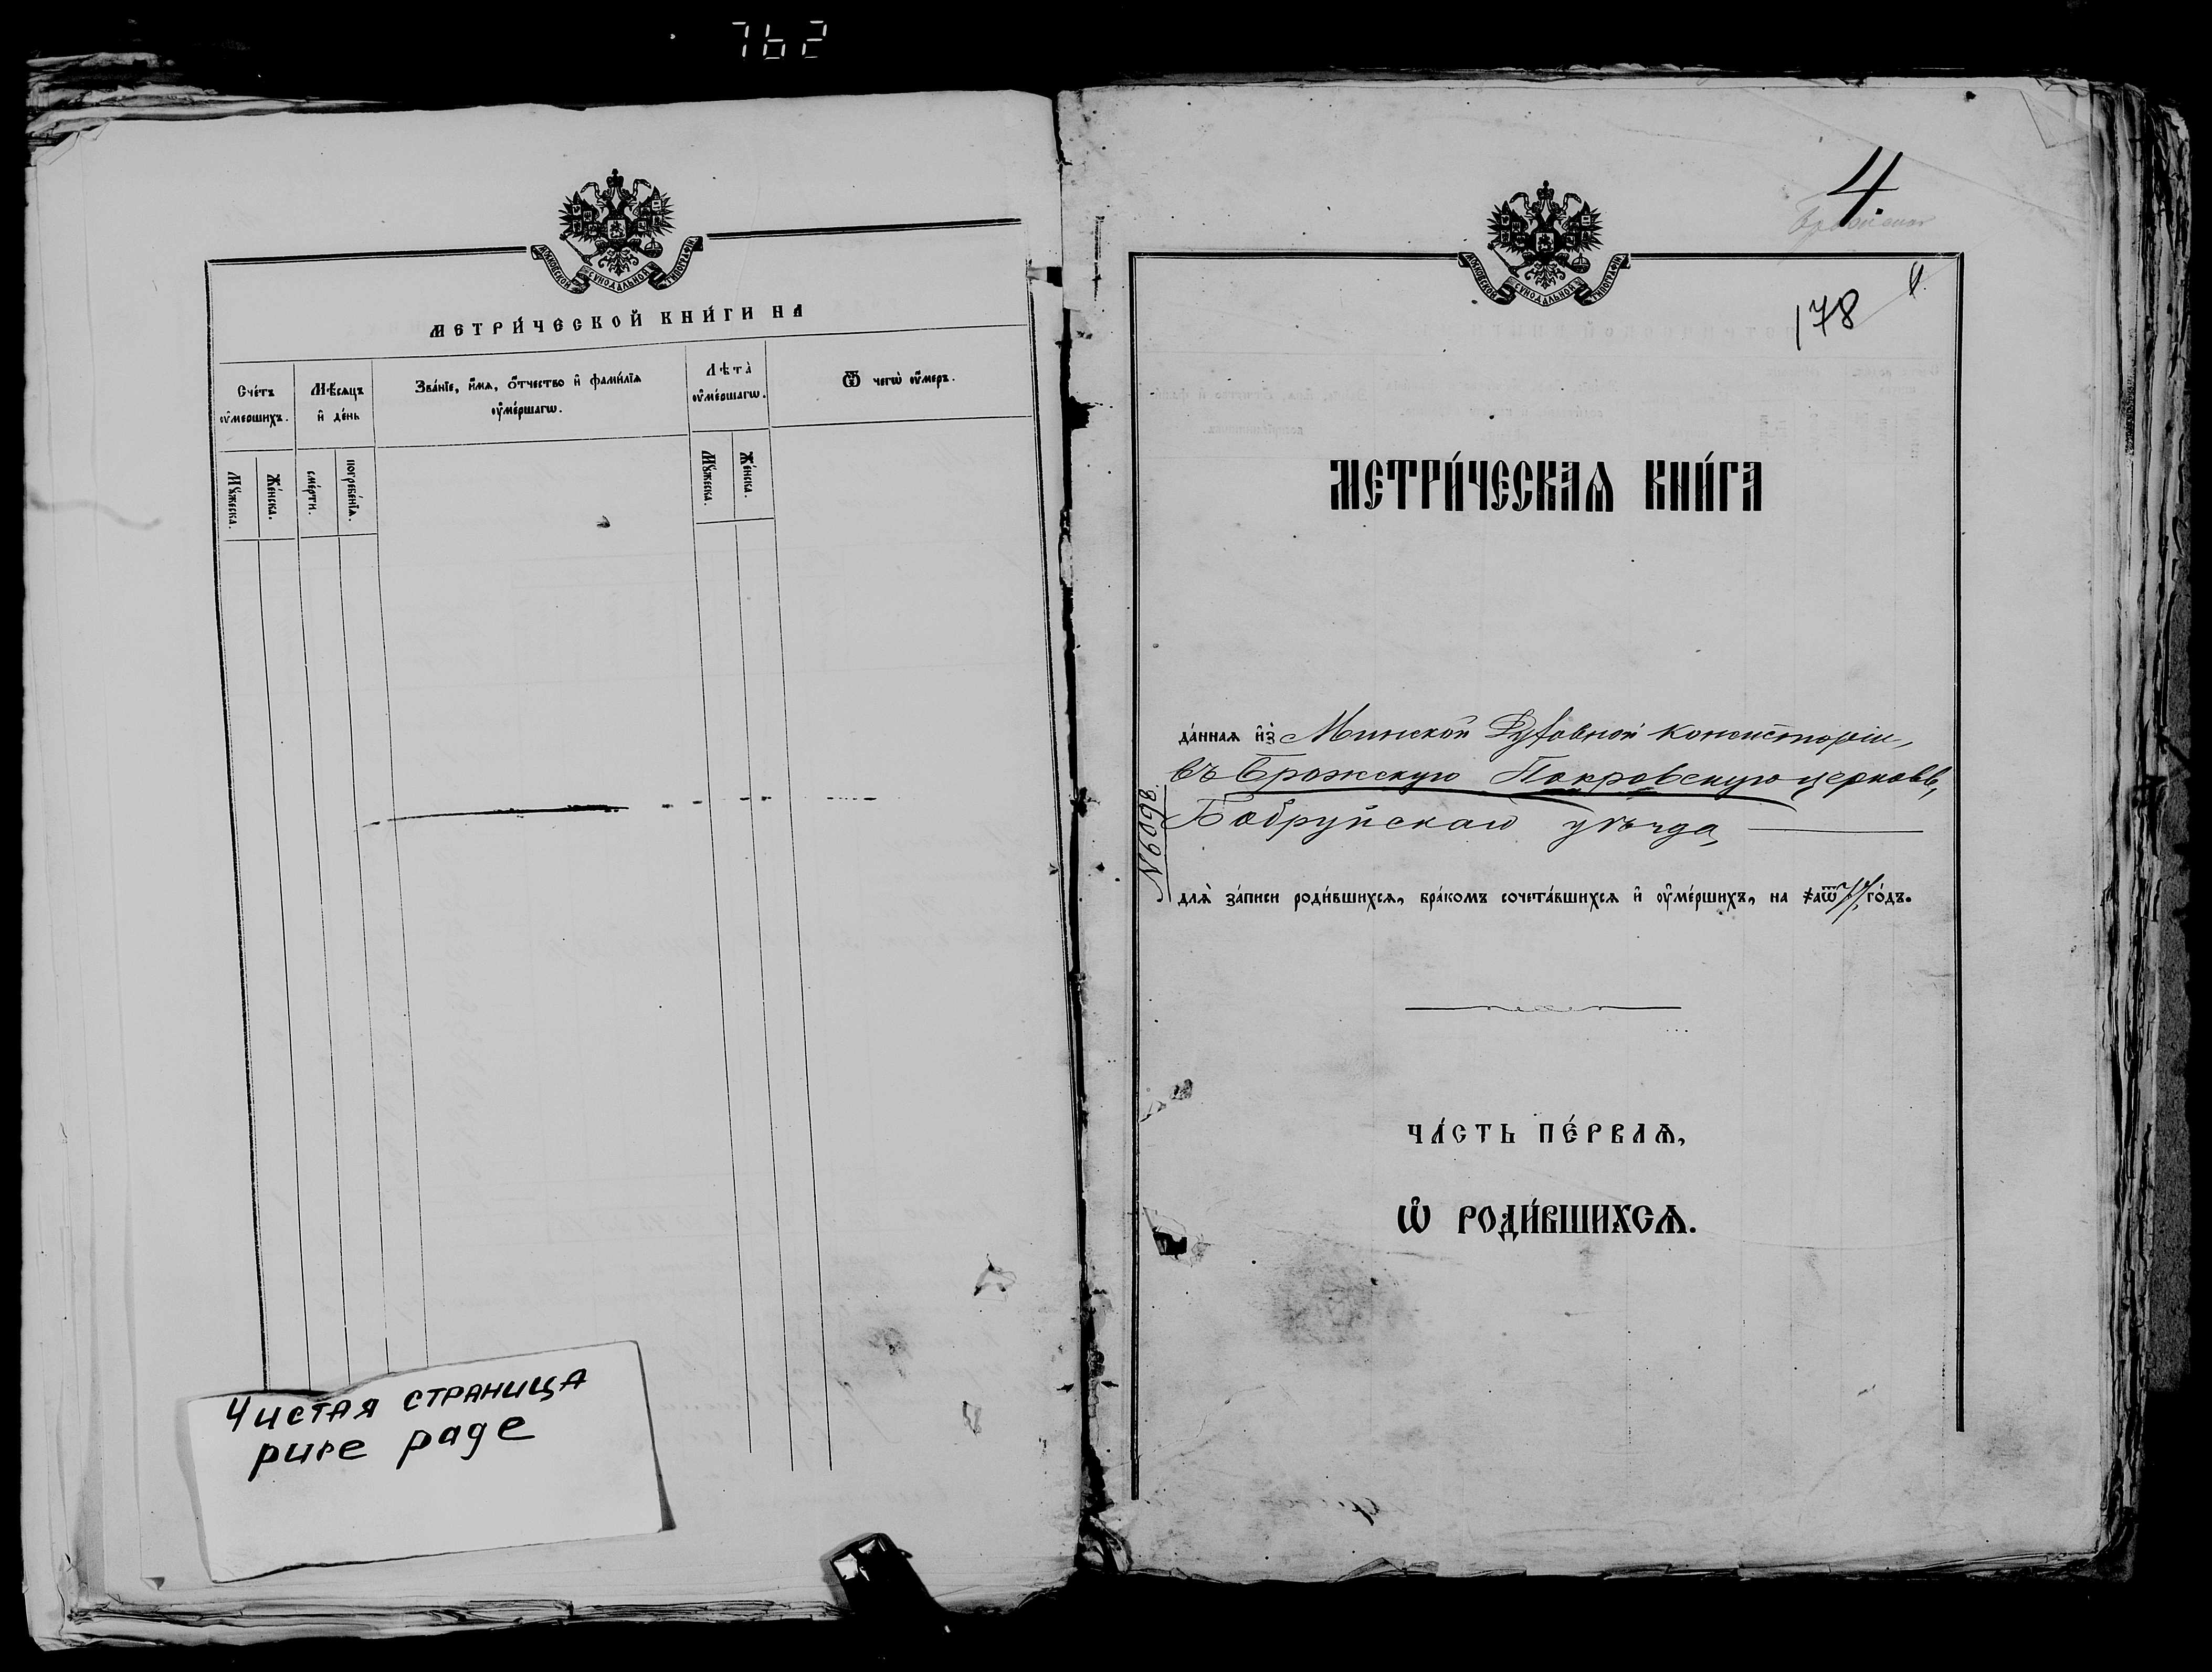 762
МОСКОВСКОЙ СѴНОДАЛЬНОЙ ТИПОГРАФІИ
МЕТРИ́ЧЕСКОЙ КНИ́ГИ НА
Сче́тъ ᲂу҆ме́ршихъ.
Мѣ́сѧцъ и҆ де́нь
Зва́нїе, и҆́мѧ, ѻ҆́тчество и҆ фами́лїѧ ᲂу҆ме́ршагѡ.
Лѣ́та̀ ᲂу҆ме́ршагѡ.
Ѿ чегѡ̀ ᲂу҆́меръ.
Мꙋ́жеска.
Же́нска.
сме́рти.
погребе́нїѧ.
Мꙋ́жеска.
Же́нска.
Чистая страница
pure page
4.
МОСКОВСКОЙ СѴНОДАЛЬНОЙ ТИПОГРАФІИ
178
МЕТРИ́ЧЕСКАѦ КНИ́ГА
да́ннаѧ и҆з̾ Минской Духовной Консисторіи,
въ Брожскую Покровскую церковь,
Бобруйскаго уѣзда,
№6098.
длѧ̀ за́писи роди́вшихсѧ, бра́комъ сочета́вшихсѧ и҆ ᲂу҆ме́ршихъ, на ҂аѿ го́дъ.
ЧА́СТЬ ПЕ́РВАѦ,
Ѡ҆ РОДИ́ВШИХСѦ.